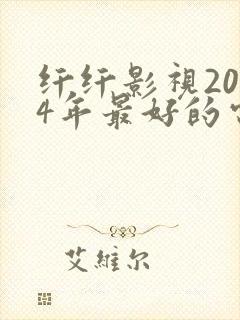 纤纤影視20
4年最好的
艾維尔